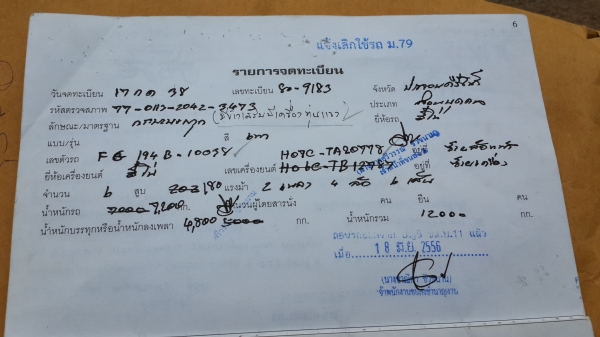 6
แจ้งเลิกใช้รถ ม.79
รายการจดทะเบียน
วันจดทะเบียน 17 กค 38 เลขทะเบียน 80-9183 จังหวัด ประจวบคีรีขันธ์
รหัสตรวจสภาพ 77-013-2042-3473 ประเภท ส่วนบุคคล
ลักษณะ/มาตรฐาน กระบะบรรทุก ยี่ห้อรถ ฮีโน่
แบบ/รุ่น สี เทา
เลขตัวรถ FG 194B-10038 H07C-TA20778 อยู่ที่
ยี่ห้อเครื่องยนต์ ฮีโน่ เลขเครื่องยนต์ อยู่ที่
จำนวน 6 สูบ 203/80 แรงม้า 2 เพลา 4 ล้อ 6 เส้น
น้ำหนักรถ 7000 7,200 กก. จำนวนผู้โดยสารนั่ง คน ยืน คน
น้ำหนักบรรทุกหรือน้ำหนักลงเพลา 4,800 5000 กก. น้ำหนักรวม 12000 กก.
เมื่อ 18 มิ.ย. 2556